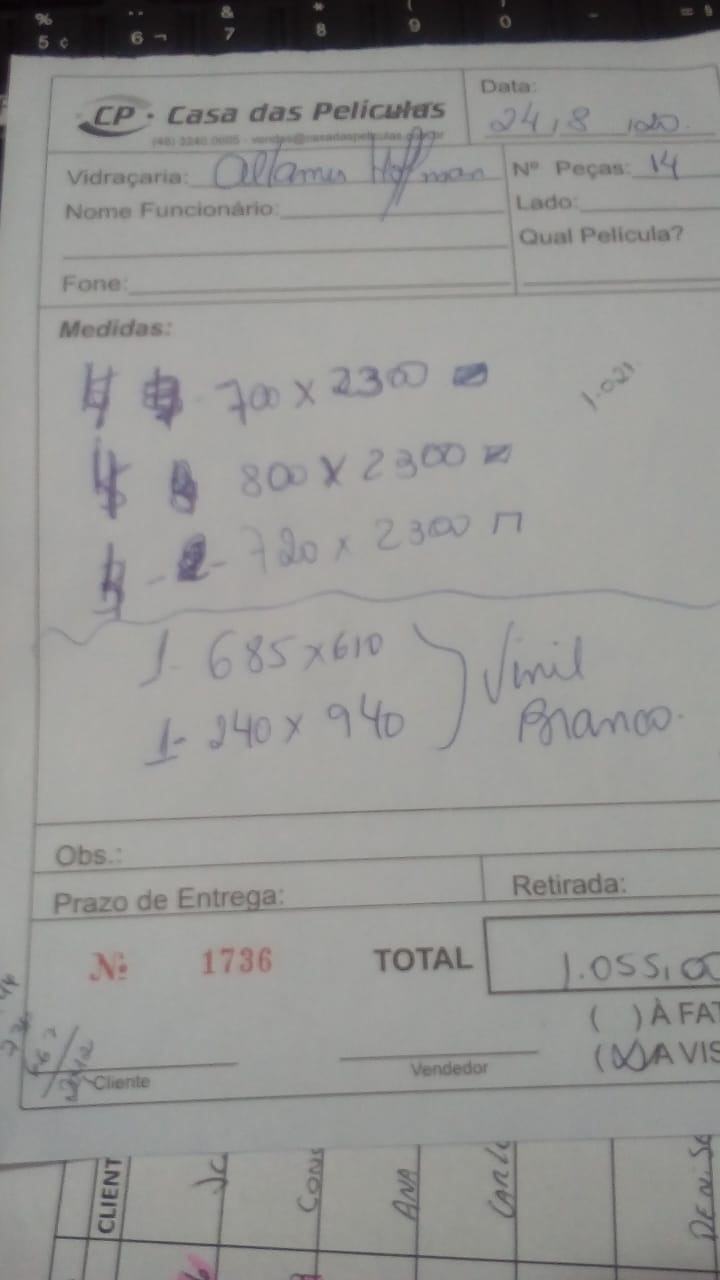 % & * ( )
5 ¢ 6 ¬ 7 8 9 0 - =
CP · Casa das Películas
(48) 3240 0005 - vendas@casadaspeliculas
Data:
24/8/20.
Vidraçaria: Altamir Hoffman
Nº Peças: 14
Nome Funcionário:
Lado:
Qual Película?
Fone:
Medidas:
4 - 700 x 2300
1.021
800 x 2300
- 2 - 720 x 2300
1- 685 x 610
1- 240 x 940
Vinil
Branco.
Obs.:
Prazo de Entrega:
Retirada:
Nº 1736 TOTAL 1.055,00
( ) À FAT
(X) A VIS
Cliente
Vendedor
CLIENT
CONS
ANA
CARL
DENISE